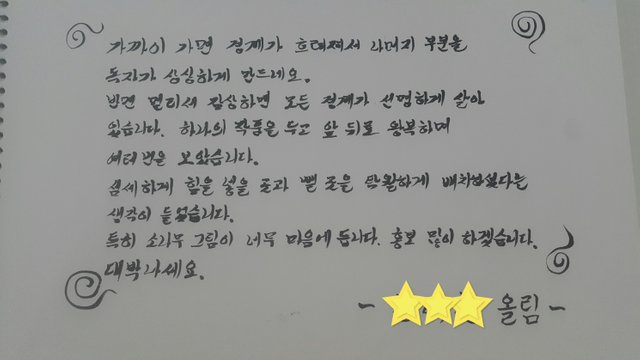 가까이 가면 경계가 흐태져서 나머지 부분을
독자가 상상하게 만드네요.
반면 멀리서 감상하면 모든 경계가 선명하게 살아
있습니다. 하나의 작품을 두고 앞 뒤로 왕복하며
여러 번을 보았습니다.
섬세하게 힘을 넣을 곳과 뺄 곳을 탁월하게 배치하였다는
생각이 들었습니다.
특히 소나무 그림이 너무 마음에 듭니다. 홍보 많이 하겠습니다.
대박나세요.
- 올림 -